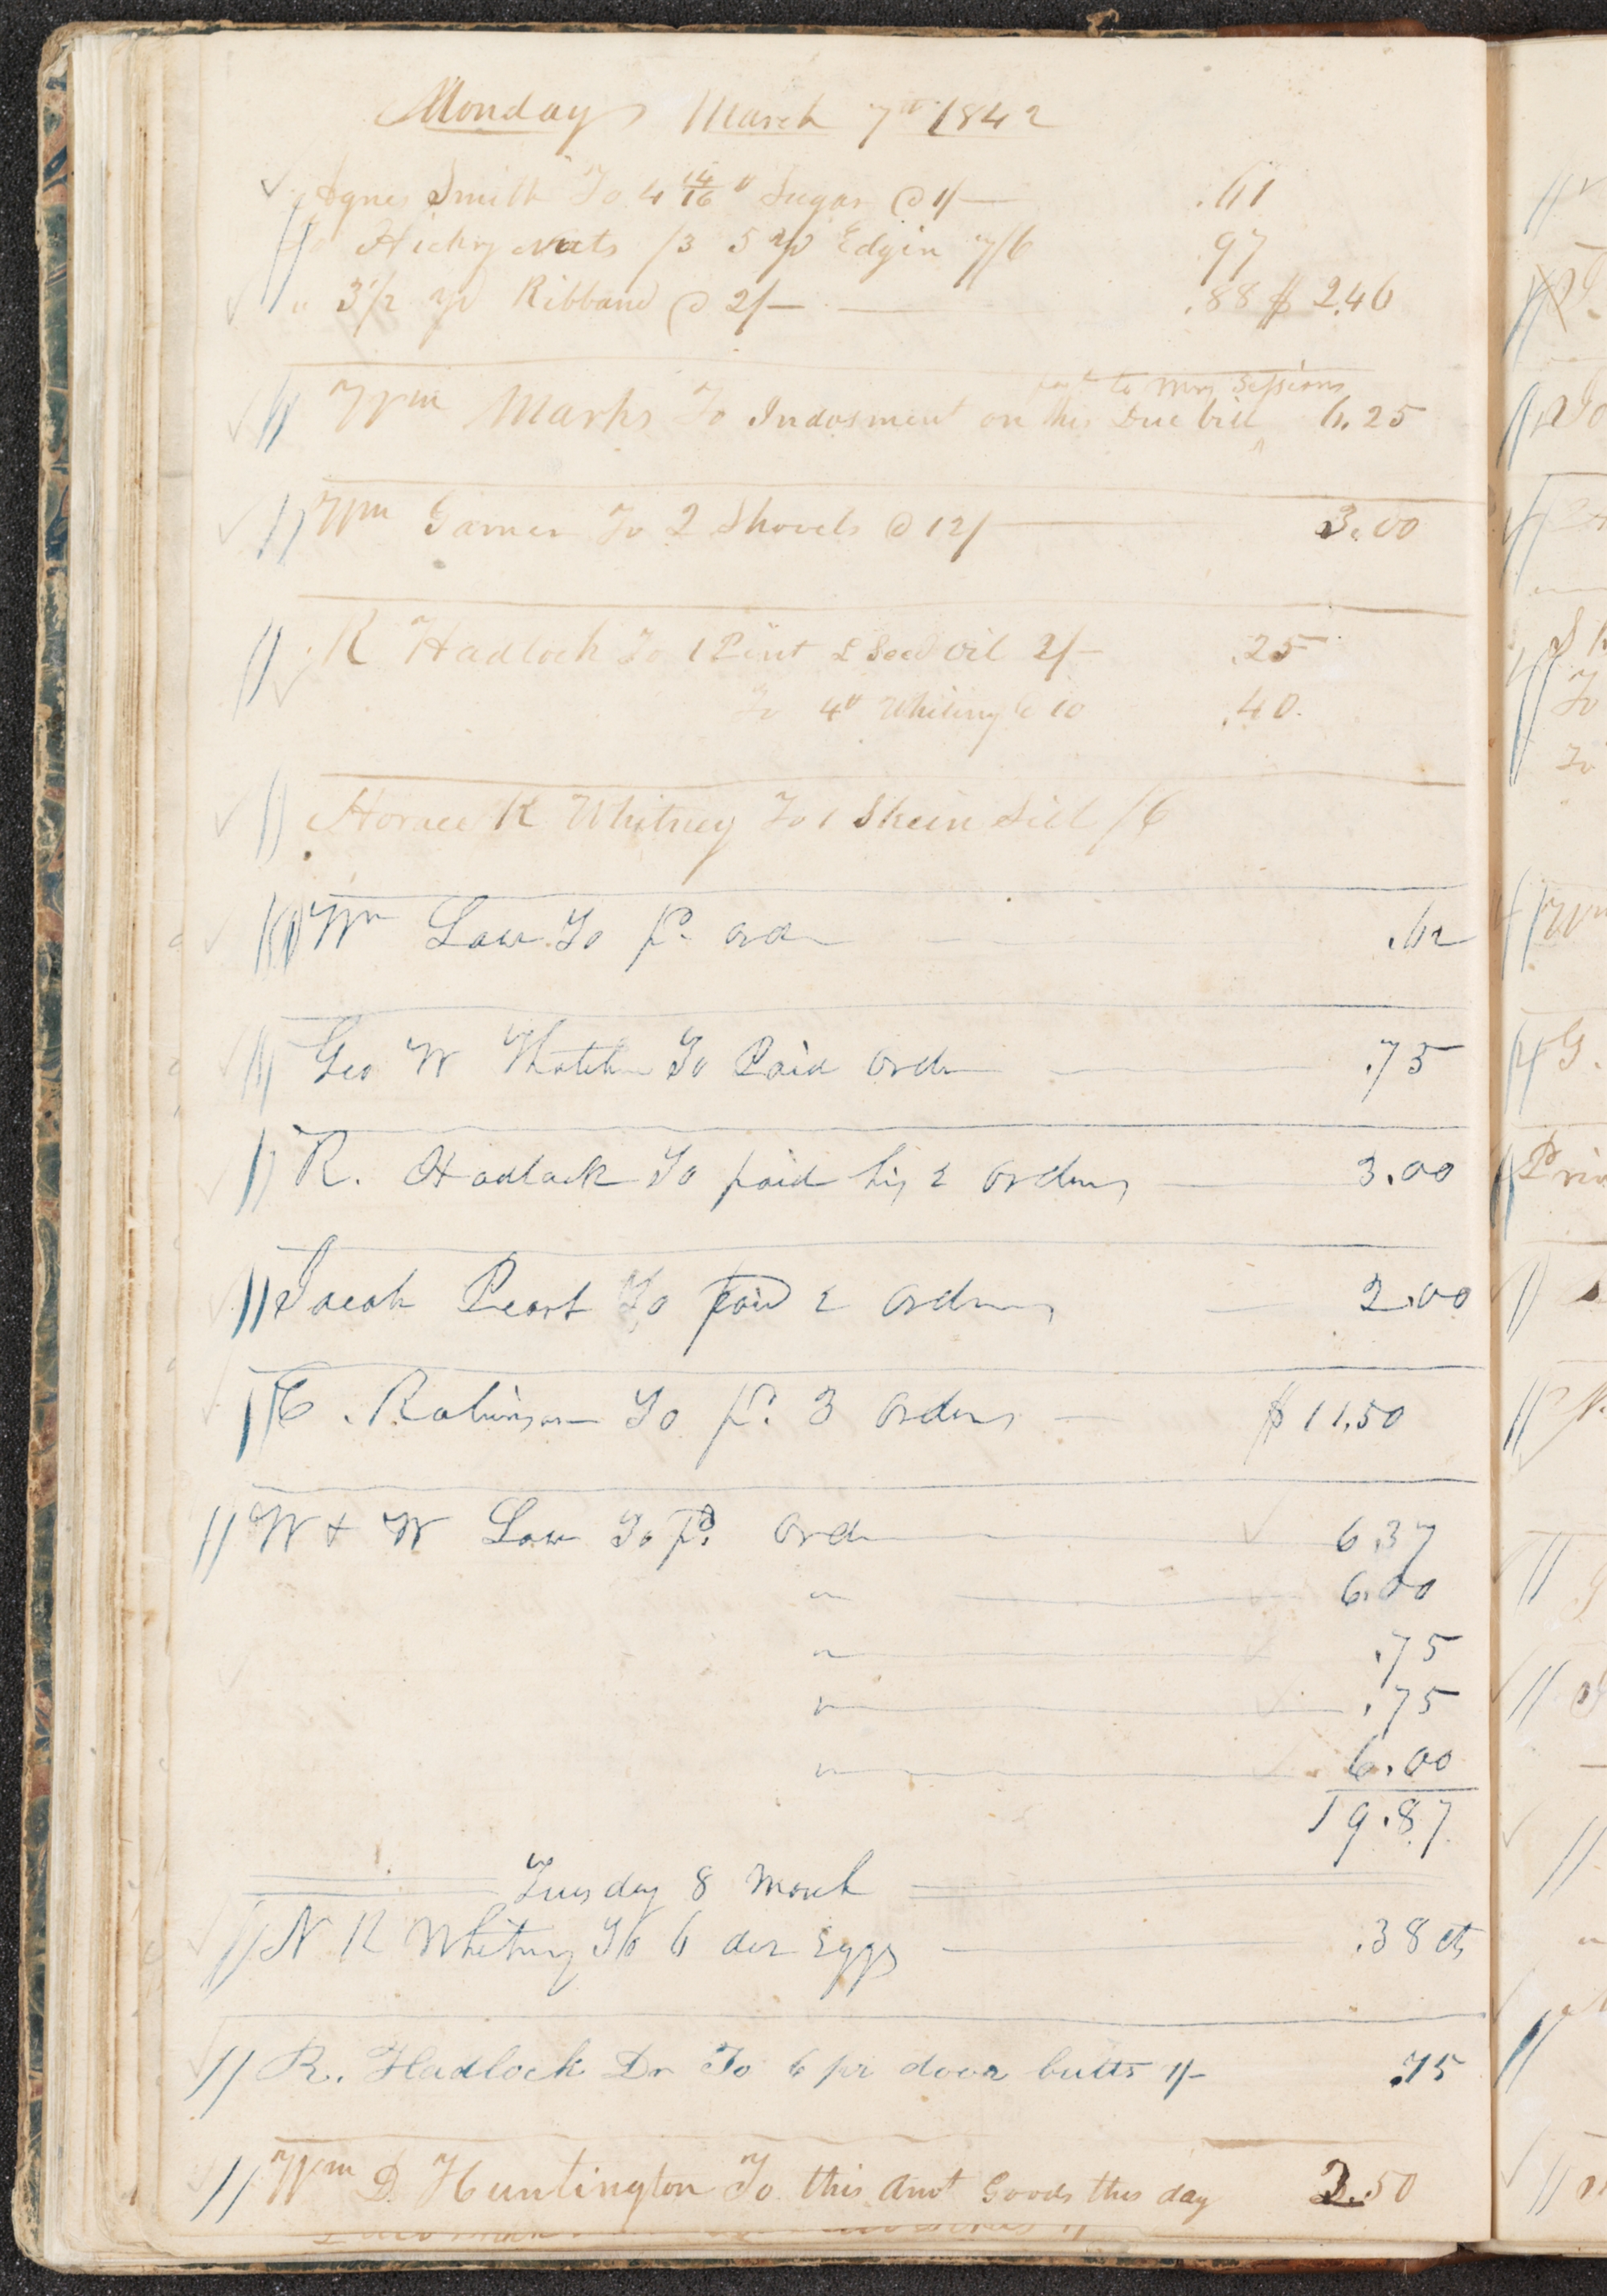 Monday March 7th 1842
Agnes Smith To 4 14/16 " Sugar @ 1/— .61
" Hickry Nuts /3 5 yd Edgin 7/6 .97
" 3 1/2 yd Ribband @ 2/— .88 $ 2.46
to Mrs Sessions
Wm Marks To Indosment on his Due bill 6.25
Wm Garner To 2 Shovels @ 12/ 3.00
R Hadlock To 1 Pint L Seed oil 2/— .25
To 4" Whiting @ 10 .40
Horace K Whitney To 1 Skein Silk /6
Wm Law To pd. ord .62
Geo W Thatcher To Paid order .75
R. Hadlock To paid his 2 orders 3.00
Jacob Peart To paid 2 orders 2.00
E. Robinson To pd. 3 orders $ 11.50
W & W Law To pd. order 6.37
" 6.00
" .75
" .75
" 6.00
19.87
Tuesday 8 March
N K Whitney To 6 doz Eggs .38 cts
R. Hadlock Dr To 6 pr door butts 1/— .75
Wm D. Huntington To this amt Goods this day 3.50